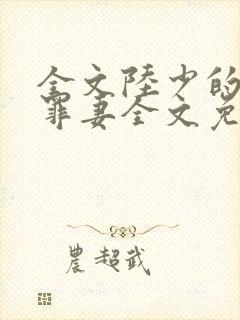 全文陸少的
罪妻全文免
農超武